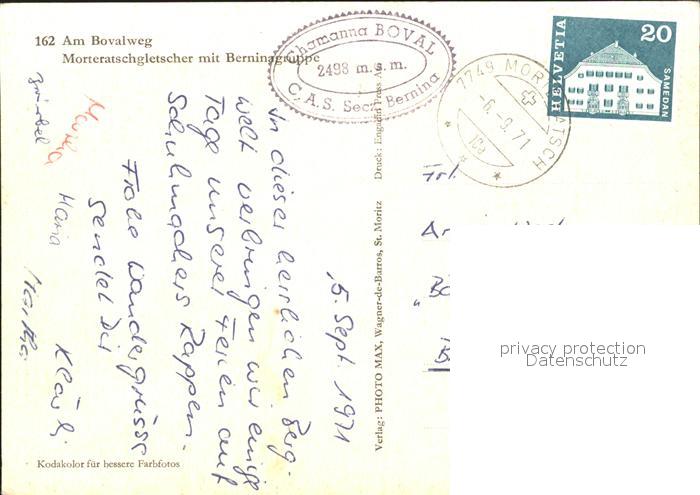 162 Am Bovalweg
Morteratschgletscher mit Berninagruppe
Chamanna BOVAL
2498 m.s.m.
C.A.S. Sect. Bernina
7749 MORTERATSCH
-6.-9.71
HELVETIA
20
SAMEDAN
5. Sept. 1971
In dieser herrlichen Berg-
welt verbringen wir einige
Tage unserer Ferien auf
Schuhmachers Rappen.
Frohe Wandergrüsse
sendet Dir
Klärli
Maria
Frl.
Verlag: PHOTO MAX, Wagner-de-Barros, St. Moritz
Druck: Engadin Press AG
Kodakolor für bessere Farbfotos
privacy protection
Datenschutz